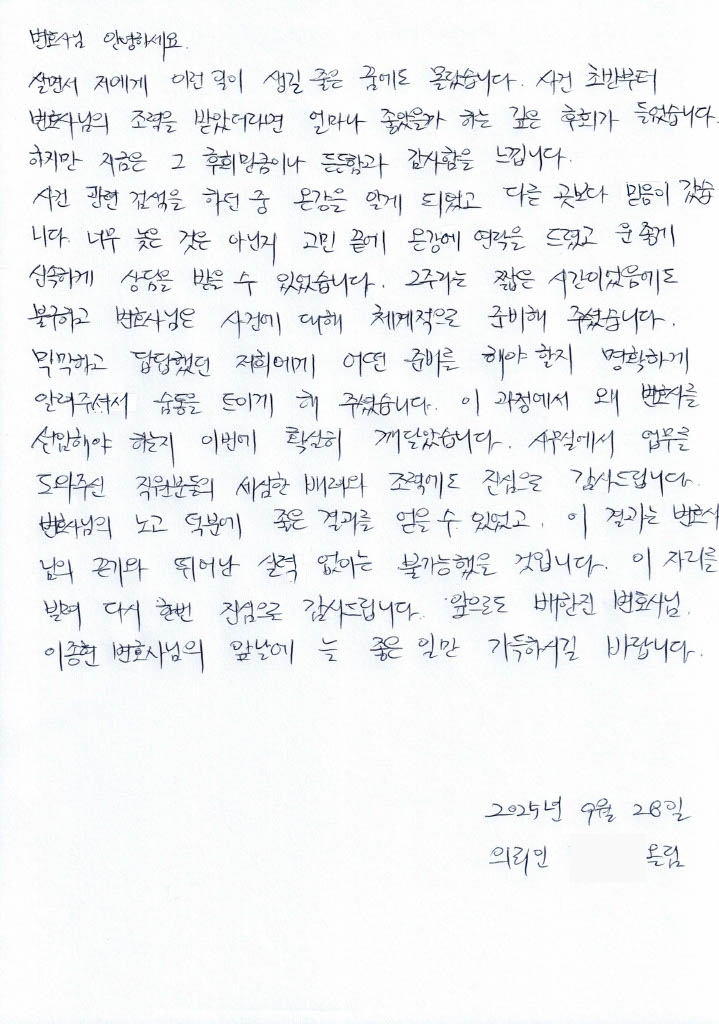 변호사님 안녕하세요.
살면서 저에게 이런 일이 생길 줄은 꿈에도 몰랐습니다. 사건 초반부터
변호사님의 조력을 받았더라면 얼마나 좋았을까 하는 깊은 후회가 들었습니다.
하지만 지금은 그 후회만큼이나 든든함과 감사함을 느낍니다.
사건 관련 검색을 하던 중 온강을 알게 되었고 다른 곳보다 믿음이 갔습
니다. 너무 늦은 것은 아닌지 고민 끝에 온강에 연락을 드렸고 운 좋게
신속하게 상담을 받을 수 있었습니다. 2주라는 짧은 시간이었음에도
불구하고 변호사님은 사건에 대해 체계적으로 준비해 주셨습니다.
막막하고 답답했던 저희에게 어떤 준비를 해야 할지 명확하게
알려주셔서 숨통을 트이게 해 주셨습니다. 이 과정에서 왜 변호사를
선임해야 하는지 이번에 확실히 깨달았습니다. 사무실에서 업무를
도와주신 직원분들의 세심한 배려와 조력에도 진심으로 감사드립니다.
변호사님의 노고 덕분에 좋은 결과를 얻을 수 있었고, 이 결과는 변호사
님의 끈기와 뛰어난 실력 없이는 불가능했을 것입니다. 이 자리를
빌려 다시 한번 진심으로 감사드립니다. 앞으로도 배한진 변호사님,
이종현 변호사님의 앞날에 늘 좋은 일만 가득하시길 바랍니다.
2025년 9월 28일
의뢰인 올림